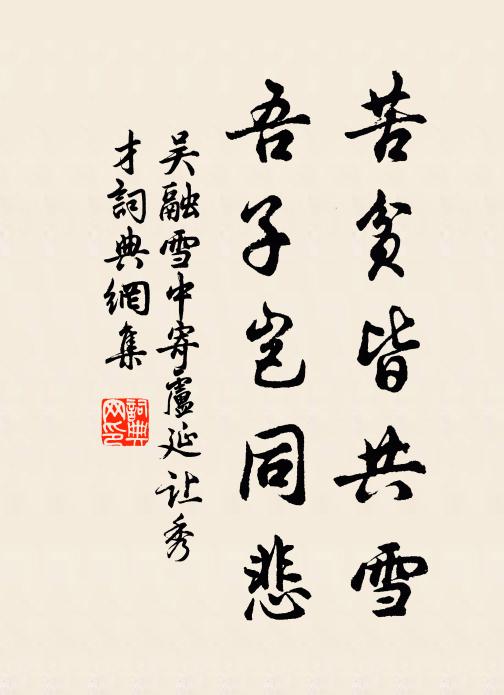 苦贫皆共雪
吾子岂同悲
吴融雪中寄盧延让秀
才詞典網集
詞典
网印